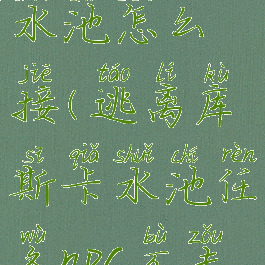 水池怎么
jiē táo lí kù
接(逃离库
sī qiǎ shuǐ chí rèn
斯卡水池任
wù bù zǒu
务npc不走